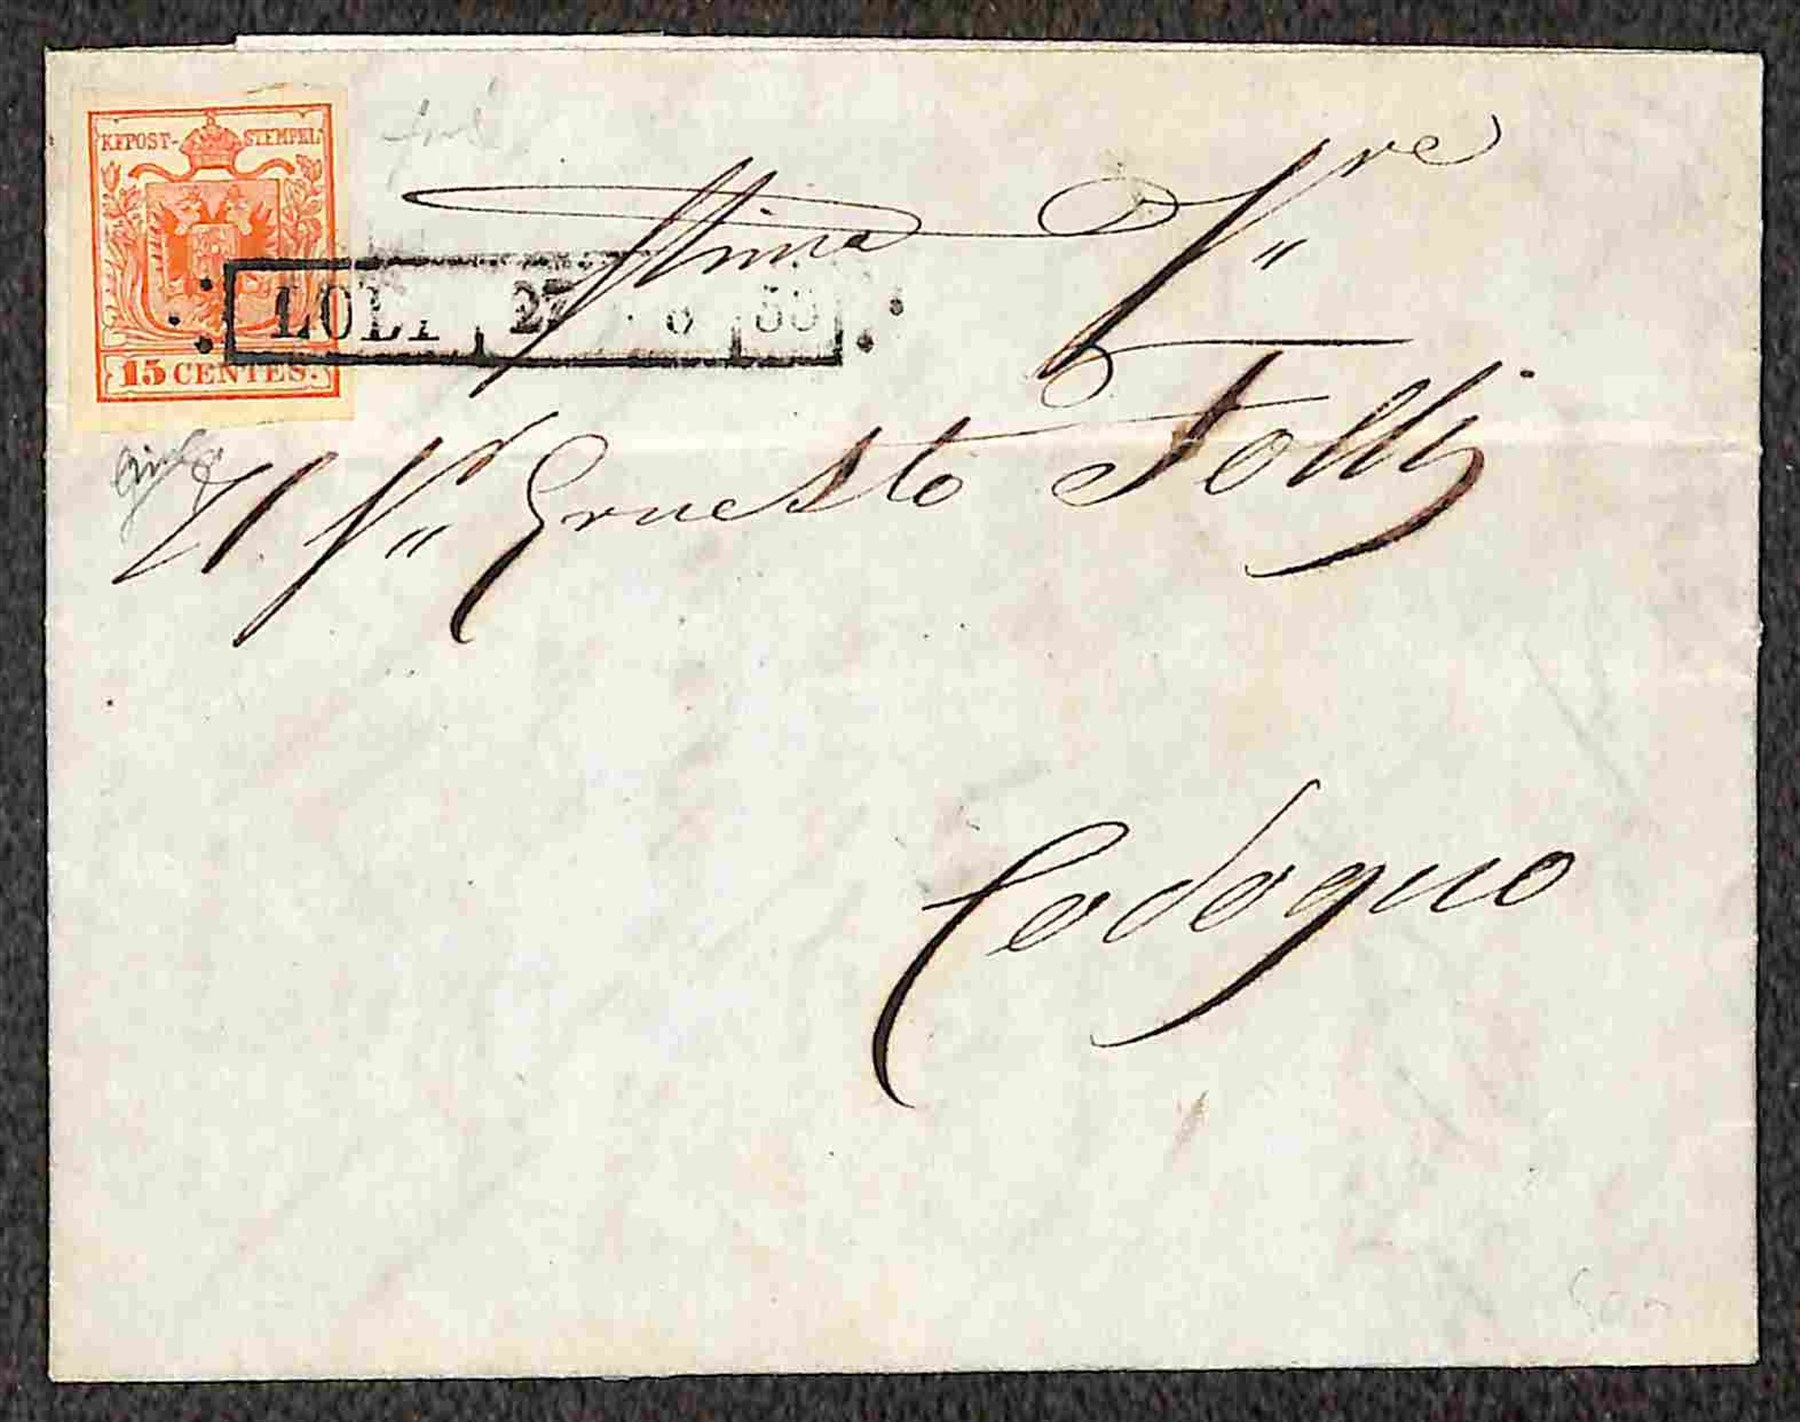 KKPOST-STEMPEL
15 CENTES.
LODI 27
Sig.re
Il Sig.r Ernesto Folli
Codogno